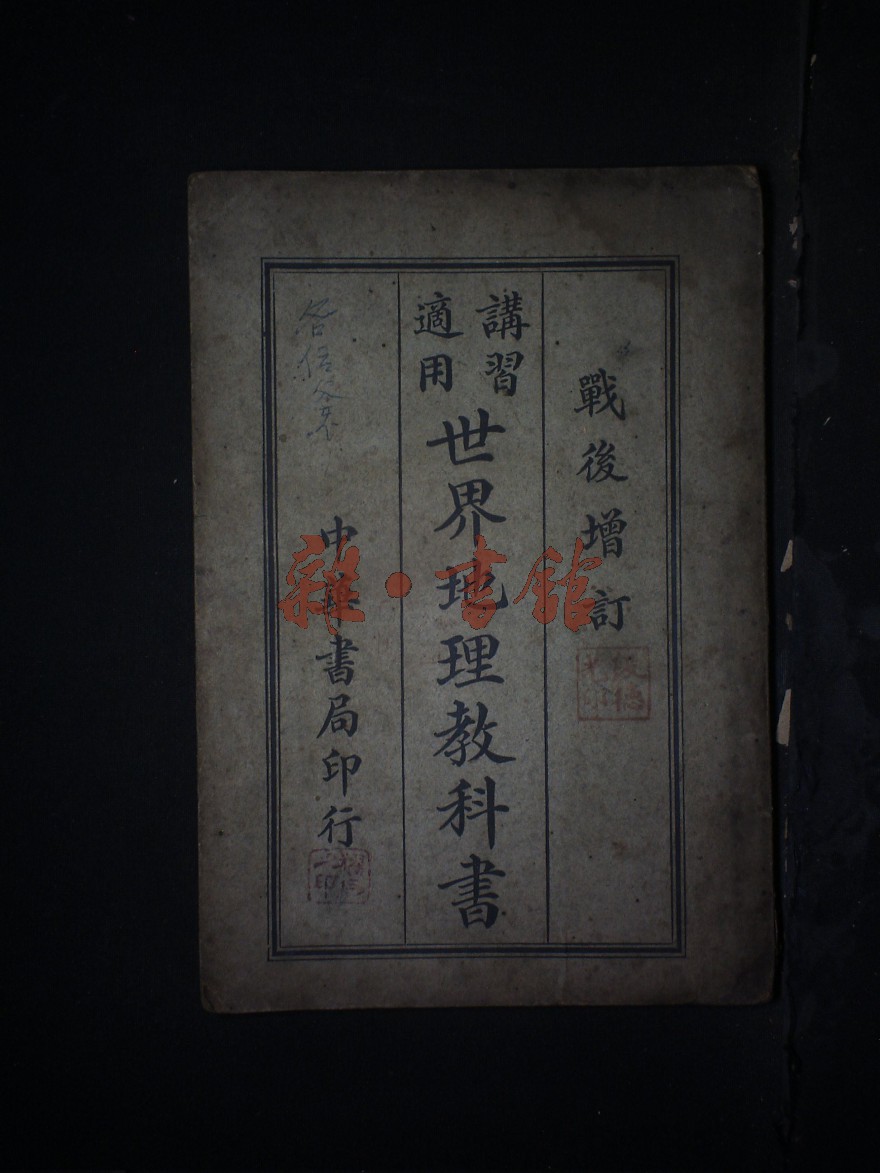 戰後增訂
講習
適用
世界地理教科書
中華書局印行
雜·書館